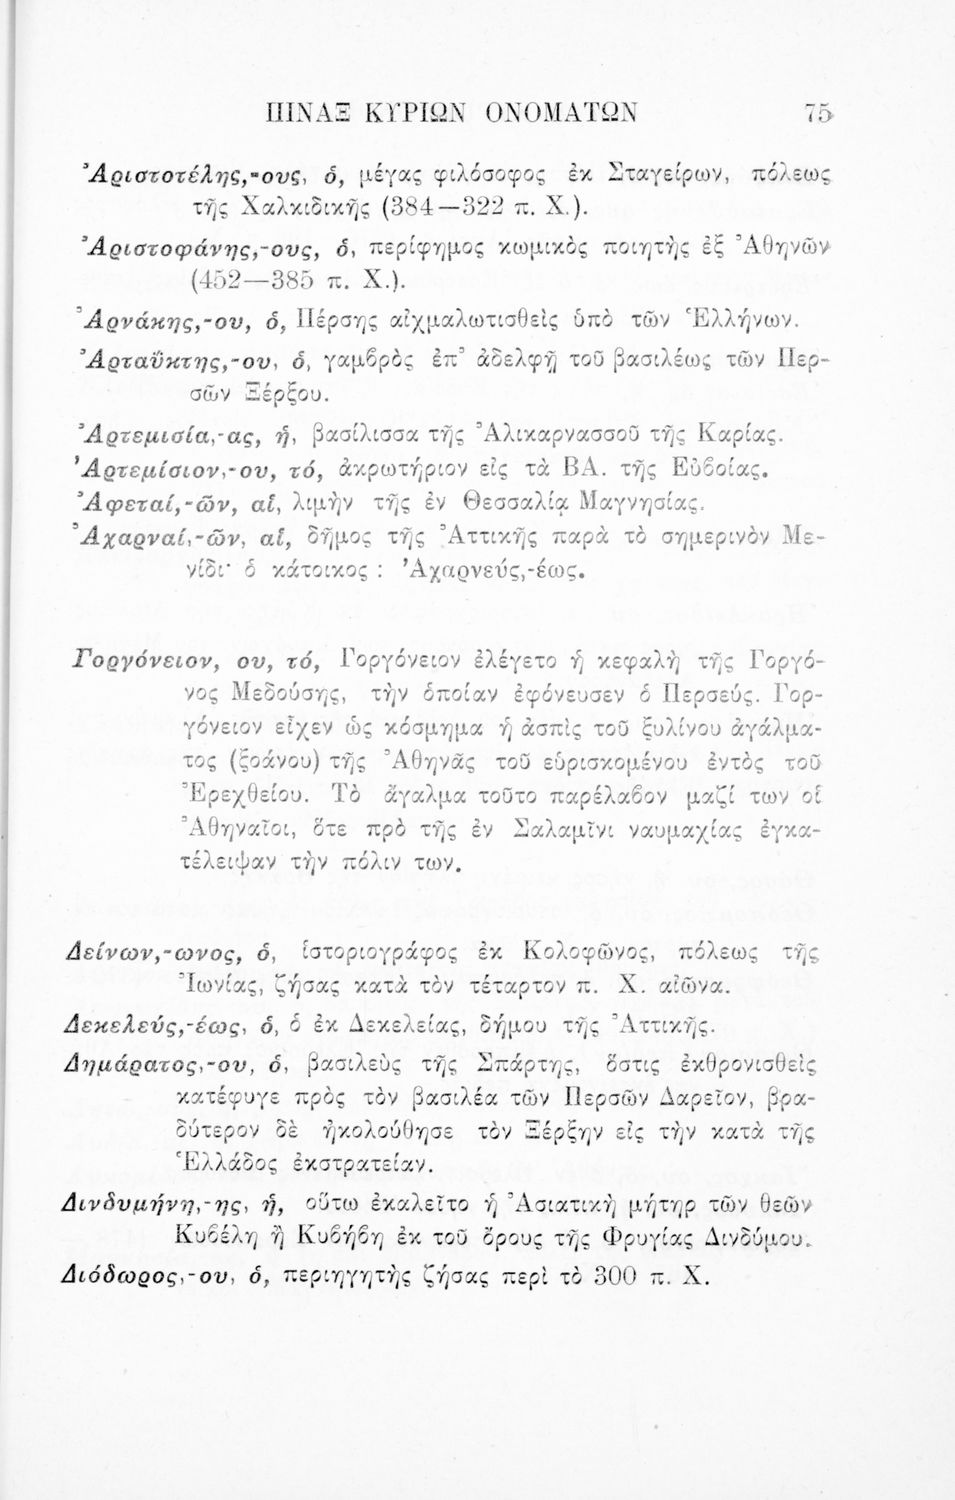 ΠΙΝΑΞ ΚΥΡΙΩΝ ΟΝΟΜΑΤΩΝ 75
Ἀριστοτέλης,-ους, ὁ, μέγας φιλόσοφος ἐκ Σταγείρων, πόλεως
τῆς Χαλκιδικῆς (384—322 π. Χ.).
Ἀριστοφάνης,-ους, ὁ, περίφημος κωμικὸς ποιητὴς ἐξ Ἀθηνῶν
(452—385 π. Χ.).
Ἀρνάκης,-ου, ὁ, Πέρσης αἰχμαλωτισθεὶς ὑπὸ τῶν Ἑλλήνων.
Ἀρταΰκτης,-ου, ὁ, γαμβρὸς ἐπ' ἀδελφῇ τοῦ βασιλέως τῶν Περ-
σῶν Ξέρξου.
Ἀρτεμισία,-ας, ἡ, βασίλισσα τῆς Ἁλικαρνασσοῦ τῆς Καρίας.
Ἀρτεμίσιον,-ου, τό, ἀκρωτήριον εἰς τὰ ΒΑ. τῆς Εὐβοίας.
Ἀφεταί,-ῶν, αἱ, λιμὴν τῆς ἐν Θεσσαλίᾳ Μαγνησίας.
Ἀχαρναί,-ῶν, αἱ, δῆμος τῆς Ἀττικῆς παρὰ τὸ σημερινὸν Με-
νίδι· ὁ κάτοικος : Ἀχαρνεύς,-έως.
Γοργόνειον, ου, τό, Γοργόνειον ἐλέγετο ἡ κεφαλὴ τῆς Γοργό-
νος Μεδούσης, τὴν ὁποίαν ἐφόνευσεν ὁ Περσεύς. Γορ-
γόνειον εἶχεν ὡς κόσμημα ἡ ἀσπὶς τοῦ ξυλίνου ἀγάλμα-
τος (ξοάνου) τῆς Ἀθηνᾶς τοῦ εὑρισκομένου ἐντὸς τοῦ
Ἐρεχθείου. Τὸ ἄγαλμα τοῦτο παρέλαβον μαζί των οἱ
Ἀθηναῖοι, ὅτε πρὸ τῆς ἐν Σαλαμῖνι ναυμαχίας ἐγκα-
τέλειψαν τὴν πόλιν των.
Δείνων,-ωνος, ὁ, ἱστοριογράφος ἐκ Κολοφῶνος, πόλεως τῆς
Ἰωνίας, ζήσας κατὰ τὸν τέταρτον π. Χ. αἰῶνα.
Δεκελεύς,-έως, ὁ, ὁ ἐκ Δεκελείας, δήμου τῆς Ἀττικῆς.
Δημάρατος,-ου, ὁ, βασιλεὺς τῆς Σπάρτης, ὅστις ἐκθρονισθεὶς
κατέφυγε πρὸς τὸν βασιλέα τῶν Περσῶν Δαρεῖον, βρα-
δύτερον δὲ ἠκολούθησε τὸν Ξέρξην εἰς τὴν κατὰ τῆς
Ἑλλάδος ἐκστρατείαν.
Δινδυμήνη,-ης, ἡ, οὕτω ἐκαλεῖτο ἡ Ἀσιατικὴ μήτηρ τῶν θεῶν
Κυβέλη ἢ Κυβήβη ἐκ τοῦ ὄρους τῆς Φρυγίας Δινδύμου.
Διόδωρος,-ου, ὁ, περιηγητὴς ζήσας περὶ τὸ 300 π. Χ.